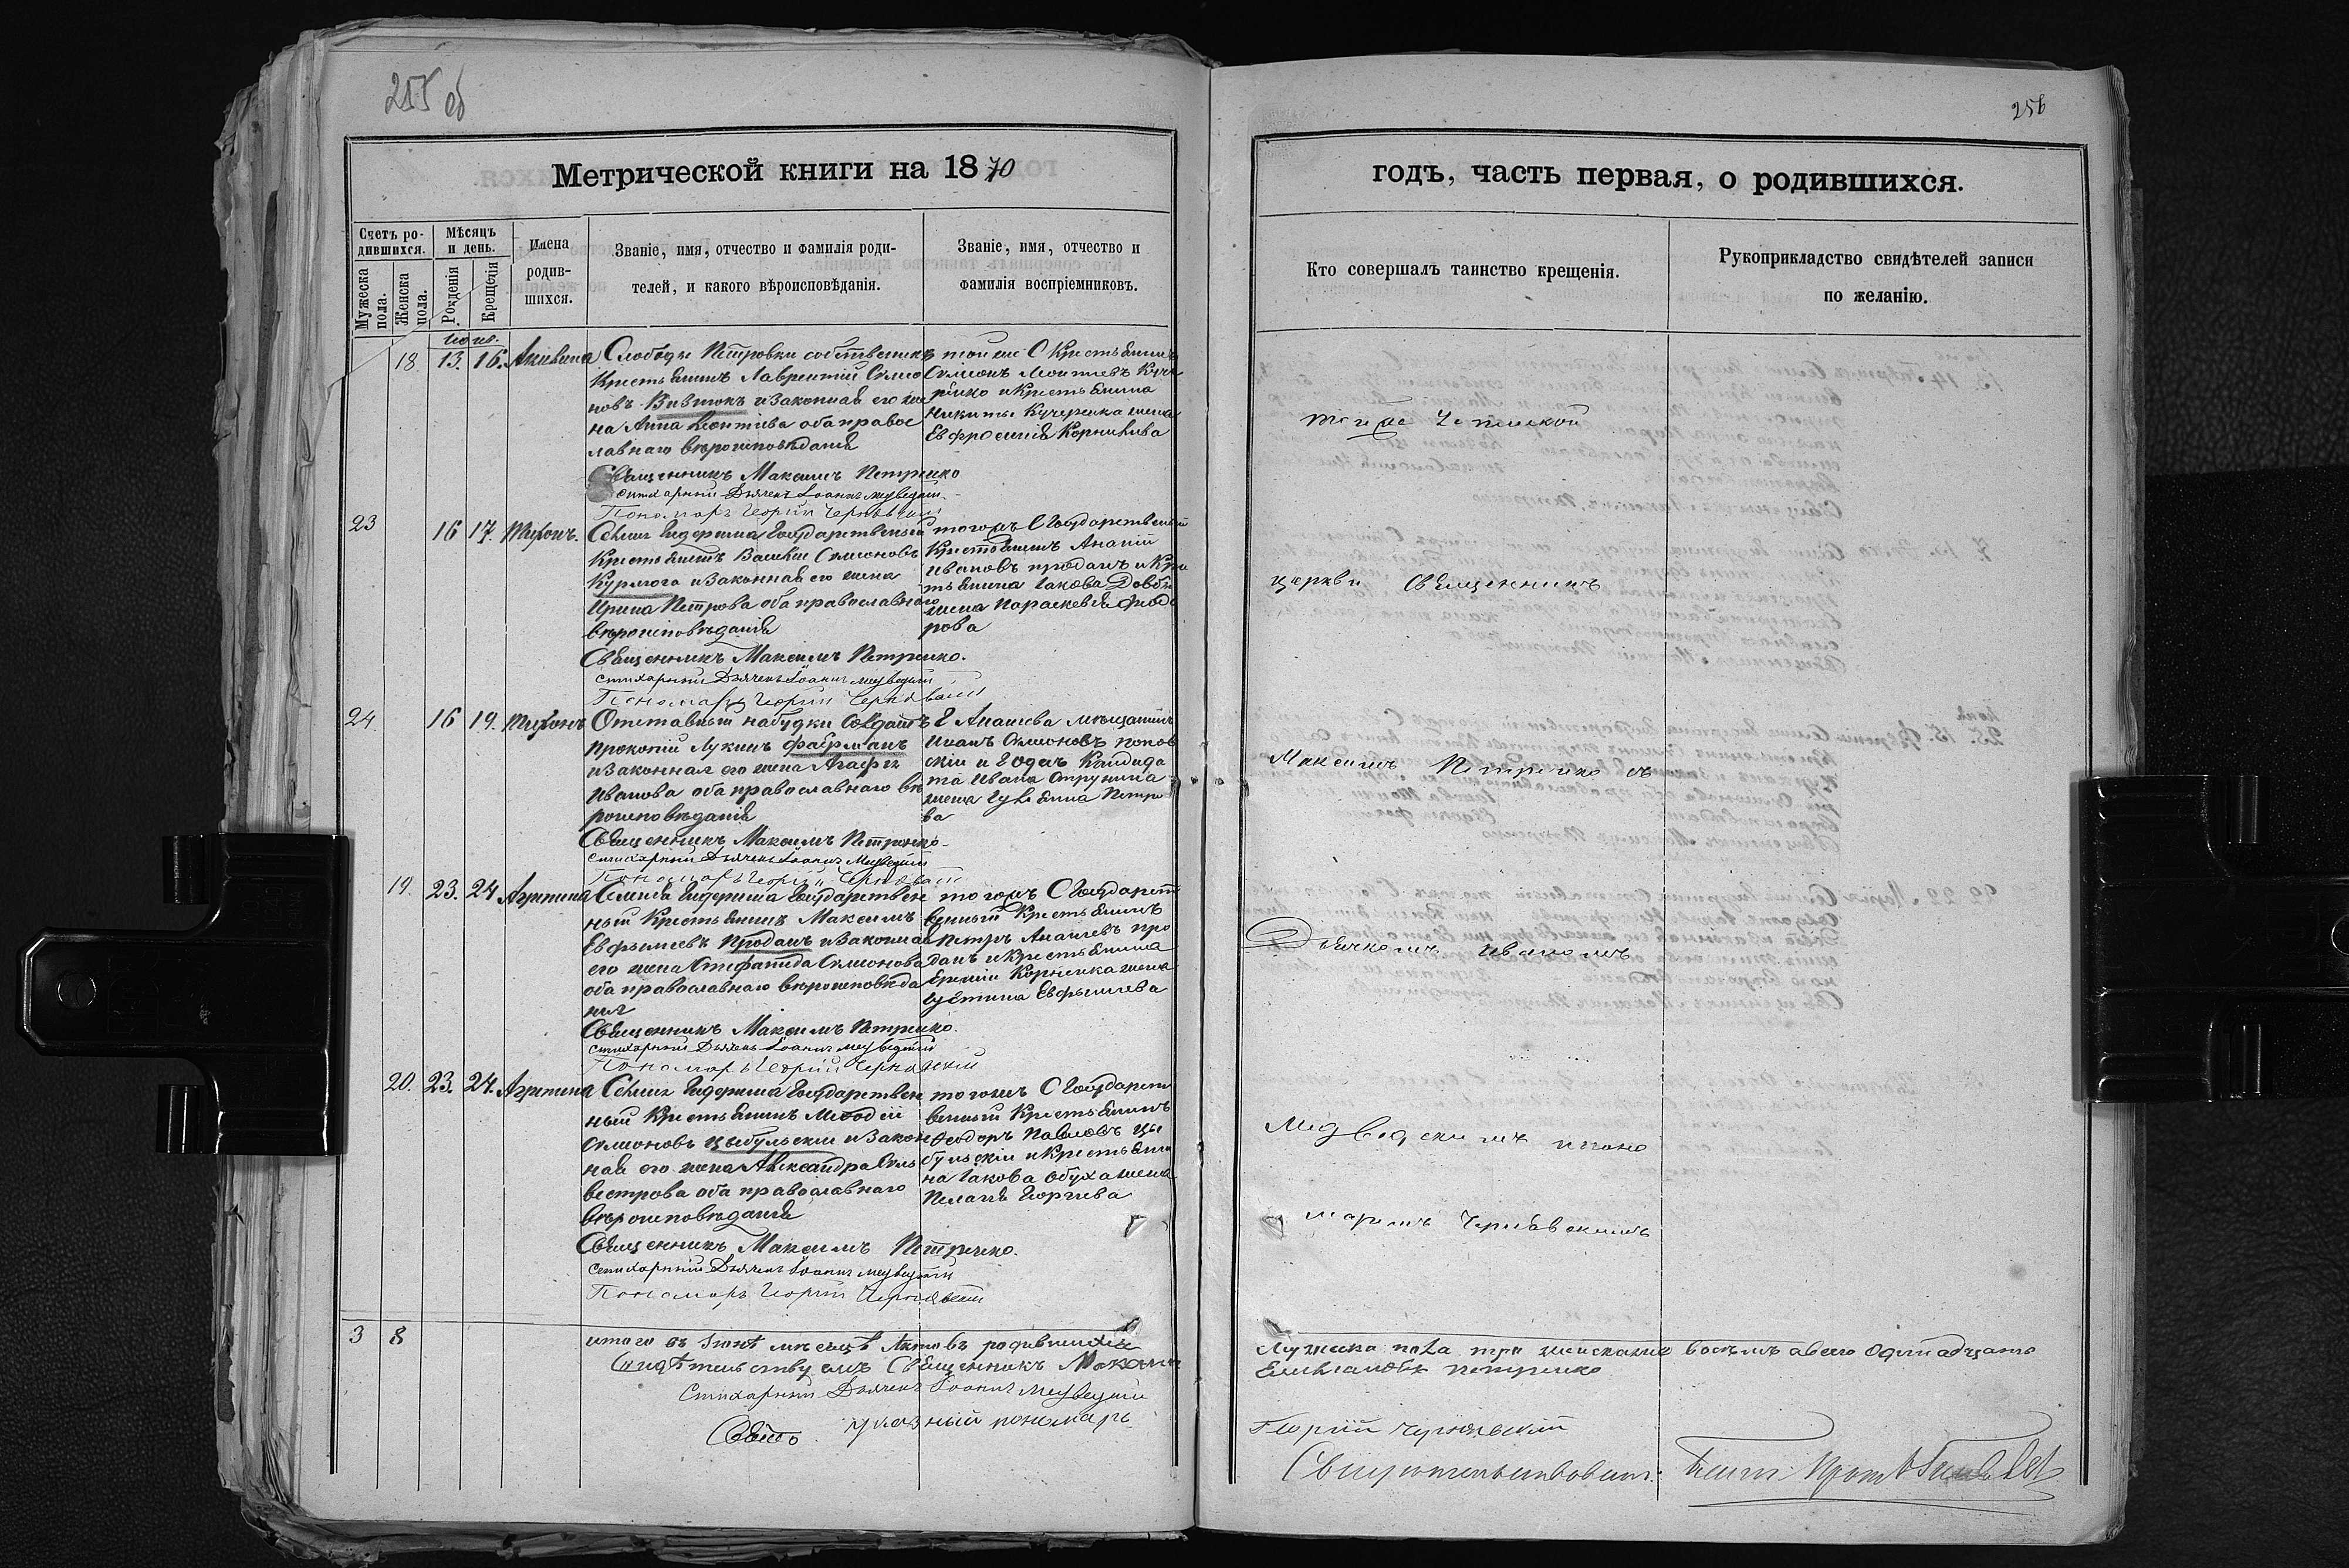 255 об
Метрической книги на 1870
Счетъ ро-
дившихся.
Мѣсяцъ
и день.
Имена
родив-
шихся.
Мужеска
пола.
Женска
пола.
Рожденія
Крещенія
Званіе, имя, отчество и фамилія роди-
телей, и какого вѣроисповѣданія.
Званіе, имя, отчество и
фамилія воспріемниковъ.
18 13. 16. Акилина
Слободы Петровки собственникъ
Крестьянинъ Лаврентій Симо
новъ и законная его же
на Анна Леонтіева оба правос
лавнаго вѣроисповѣданія
Священникъ Максимъ Петренко
Стихарный Дьячекъ Іоаннъ Медведскій
Пономарь Георгій Чернявскій
той же С Крестьянинъ
Симонъ Леонтіевъ Куче
ренко и Крестьянина
Никиты Кучеренка жена
Евфросинія Корниліева
23 16 17. Тихонъ.
Сѣнныя Государственный
Крестьянинъ Василій Симоновъ
и законная его жена
Ирина Петрова оба православнаго
вѣроисповѣданія
Священникъ Максимъ Петренко.
Стихарный Дьячекъ Іоаннъ Медведскій
Пономарь Георгій Чернявскій
тогожъ С Государственный
Крестьянинъ Ананій
Ивановъ проданъ и Кре
стьянина Іакова
жена Параскевія Фіодо
рова
24. 16 19. Тихонъ
Отставный
Прокопій Лукинъ
и законная его жена Агафія
Иванова оба православнаго вѣ
роисповѣданія
Священникъ Максимъ Петренко
Стихарный Дьячекъ Іоаннъ Медведскій
Пономарь Георгій Чернявскій
Г Ананьева мѣщанинъ
Иванъ Симоновъ попов
скій и Г Кандида
та Ивана
жена Петро
ва
19. 23. 24 Агрипина
Государствен
ный Крестьянинъ Максимъ
Евфимьевъ Проданъ и законная
его жена Стефанида Симонова
оба православнаго вѣроисповѣда
нія
Священникъ Максимъ Петренко.
Стихарный Дьячекъ Іоаннъ Медведскій
Пономарь Георгій Чернявскій
тогожъ С Государст
венный Крестьянинъ
Петръ Ананьевъ про
данъ и Крестьянина
Корнѣенка жена
Іустина Евфимьева
20. 23. 24. Агрипина
Государствен
ный Крестьянинъ Меѳодій
Симоновъ Цыбульскій и закон
ная его жена Александра Силь
вестрова оба православнаго
вѣроисповѣданія
Священникъ Максимъ Петренко.
Стихарный Дьячекъ Іоаннъ Медведскій
Пономарь Георгій Чернявскій
тогожъ С Государст
венный Крестьянинъ
Ѳеодоръ Павловъ Цы
бульскій и Крестьяни
на Іакова Обуха жена
Пелагія Георгіева
3 8
итого въ Іюнѣ мѣсяцѣ Актовъ родившихся
Свидѣтельствуемъ Священникъ Максимъ
Стихарный Дьячекъ Іоаннъ Медведскій
указный пономарь
256
годъ, часть первая, о родившихся.
Кто совершалъ таинство крещенія.
Рукоприкладство свидѣтелей записи
по желанію.
тойже
церкви Священникъ
Максимъ Петренко съ
Дьячкомъ Иваномъ
Медведскимъ и поно
маремъ Чернявскимъ
Мужеска пола три женскаго восемь а всего одинадцать
Петренко
Георгій Чернявскій
Свидѣтельствовалъ: